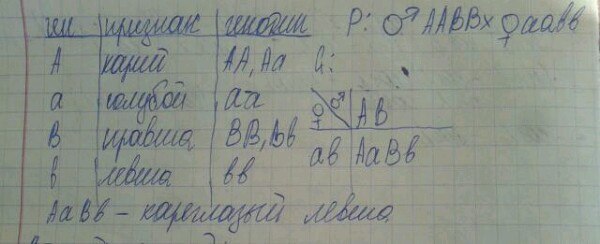 ген признак генотип P: ♂ ААВВ x ♀ аавв
А карий АА, Аа G:
а голубой аа ♀ ♂ АВ
В правша ВВ, Вв ав АаВв
в левша вв
АаВв – кареглазый левша